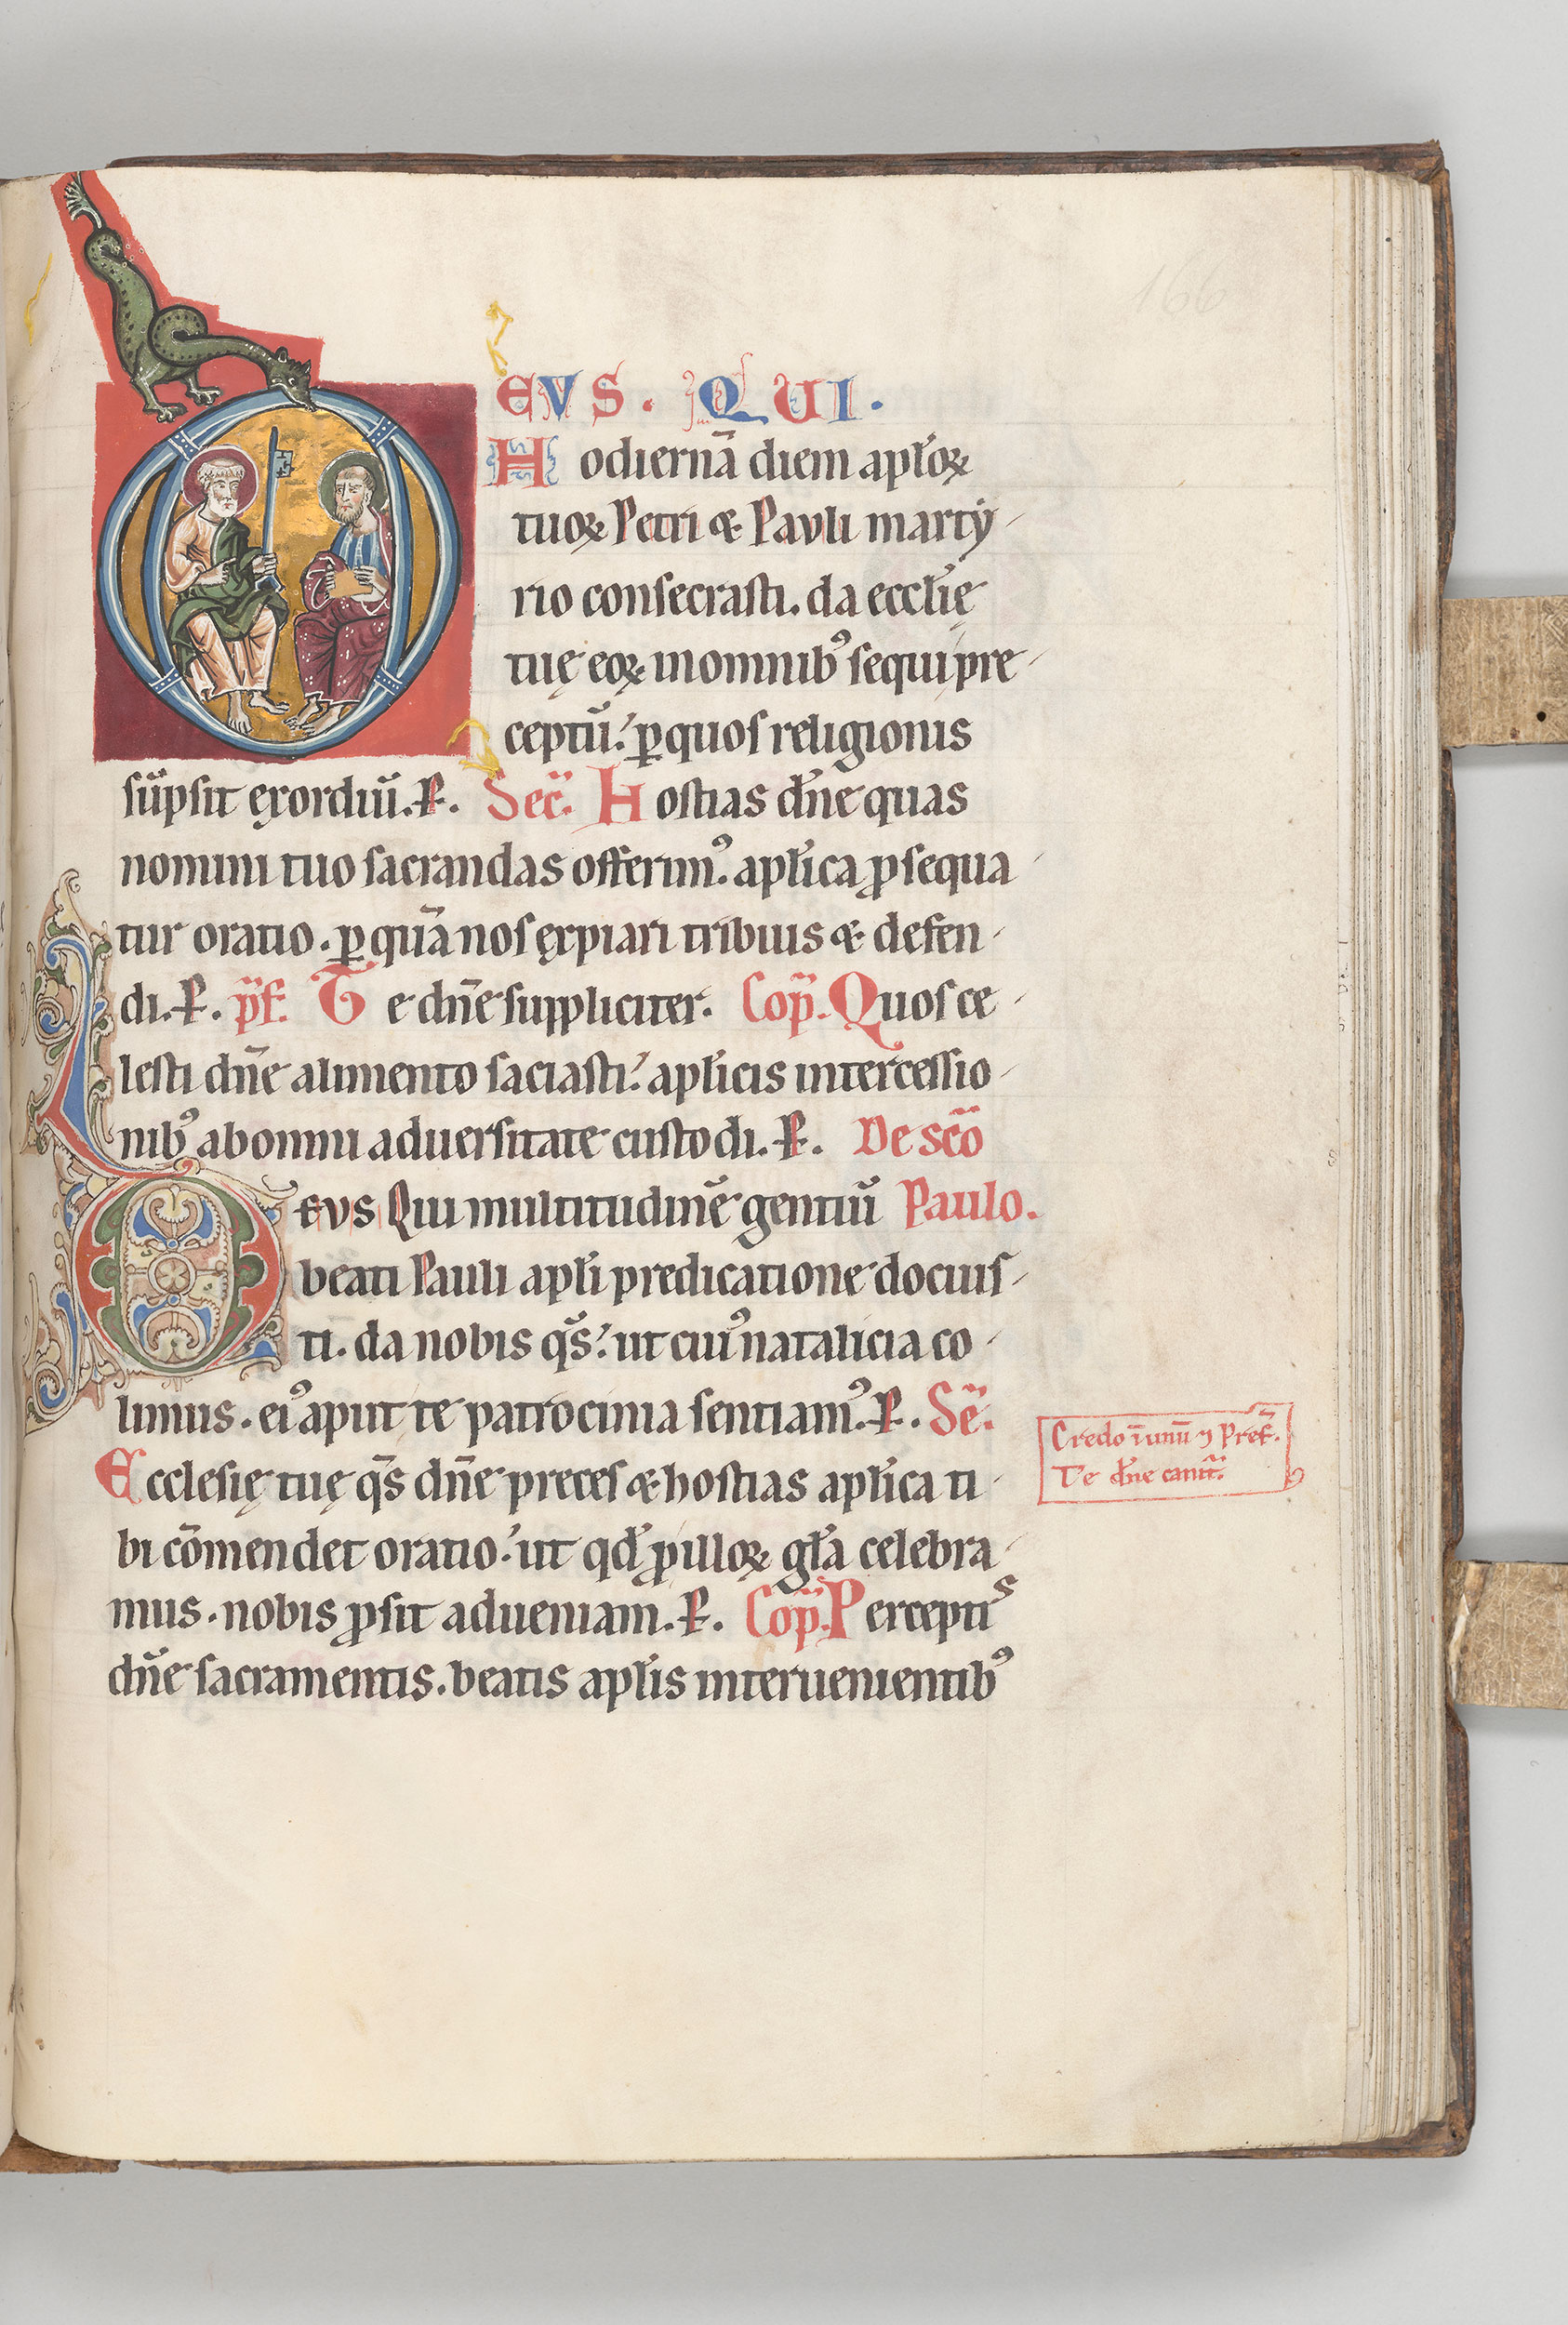 166
EVS. QUI.
Hodiernā diem apl'oꝝ
tuoꝝ Petri & Pauli marty
rio consecrasti. da eccl'ię
tuę eoꝝ in omnib' sequi pre
ceptū. ꝑ quos religionis
sūpsit exordiū. P. Sec. Hostias dn̄e quas
nomini tuo sacrandas offerim'. apl'ica ꝓsequa
tur oratio. ꝑ quā nos expiari tribuis & defen
di. P. pf. Te dn̄e suppliciter. Cop. Quos ce
lesti dn̄e alimento saciasti. apl'icis intercessio
nib' ab omni aduersitate custodi. P. De sc̄o
EVS Qui multitudinē gentiū Paulo.
beati Pauli apl'i predicatione docuis
ti. da nobis qs̄. ut cui' natalicia co
limus. ei' aput te patrocinia sentiam'. P. Se.
Ecclesię tuę qs̄ dn̄e preces & hostias apl'ica ti
bi cōmendet oratio. ut qd' ꝓ illoꝝ gl'a celebra
mus. nobis ꝓsit ad ueniam. P. Cop. Perceptis
dn̄e sacramentis. beatis apl'is interuenientib'
Credo ī unū ⁊ Pref.
Te dn̄e canit.